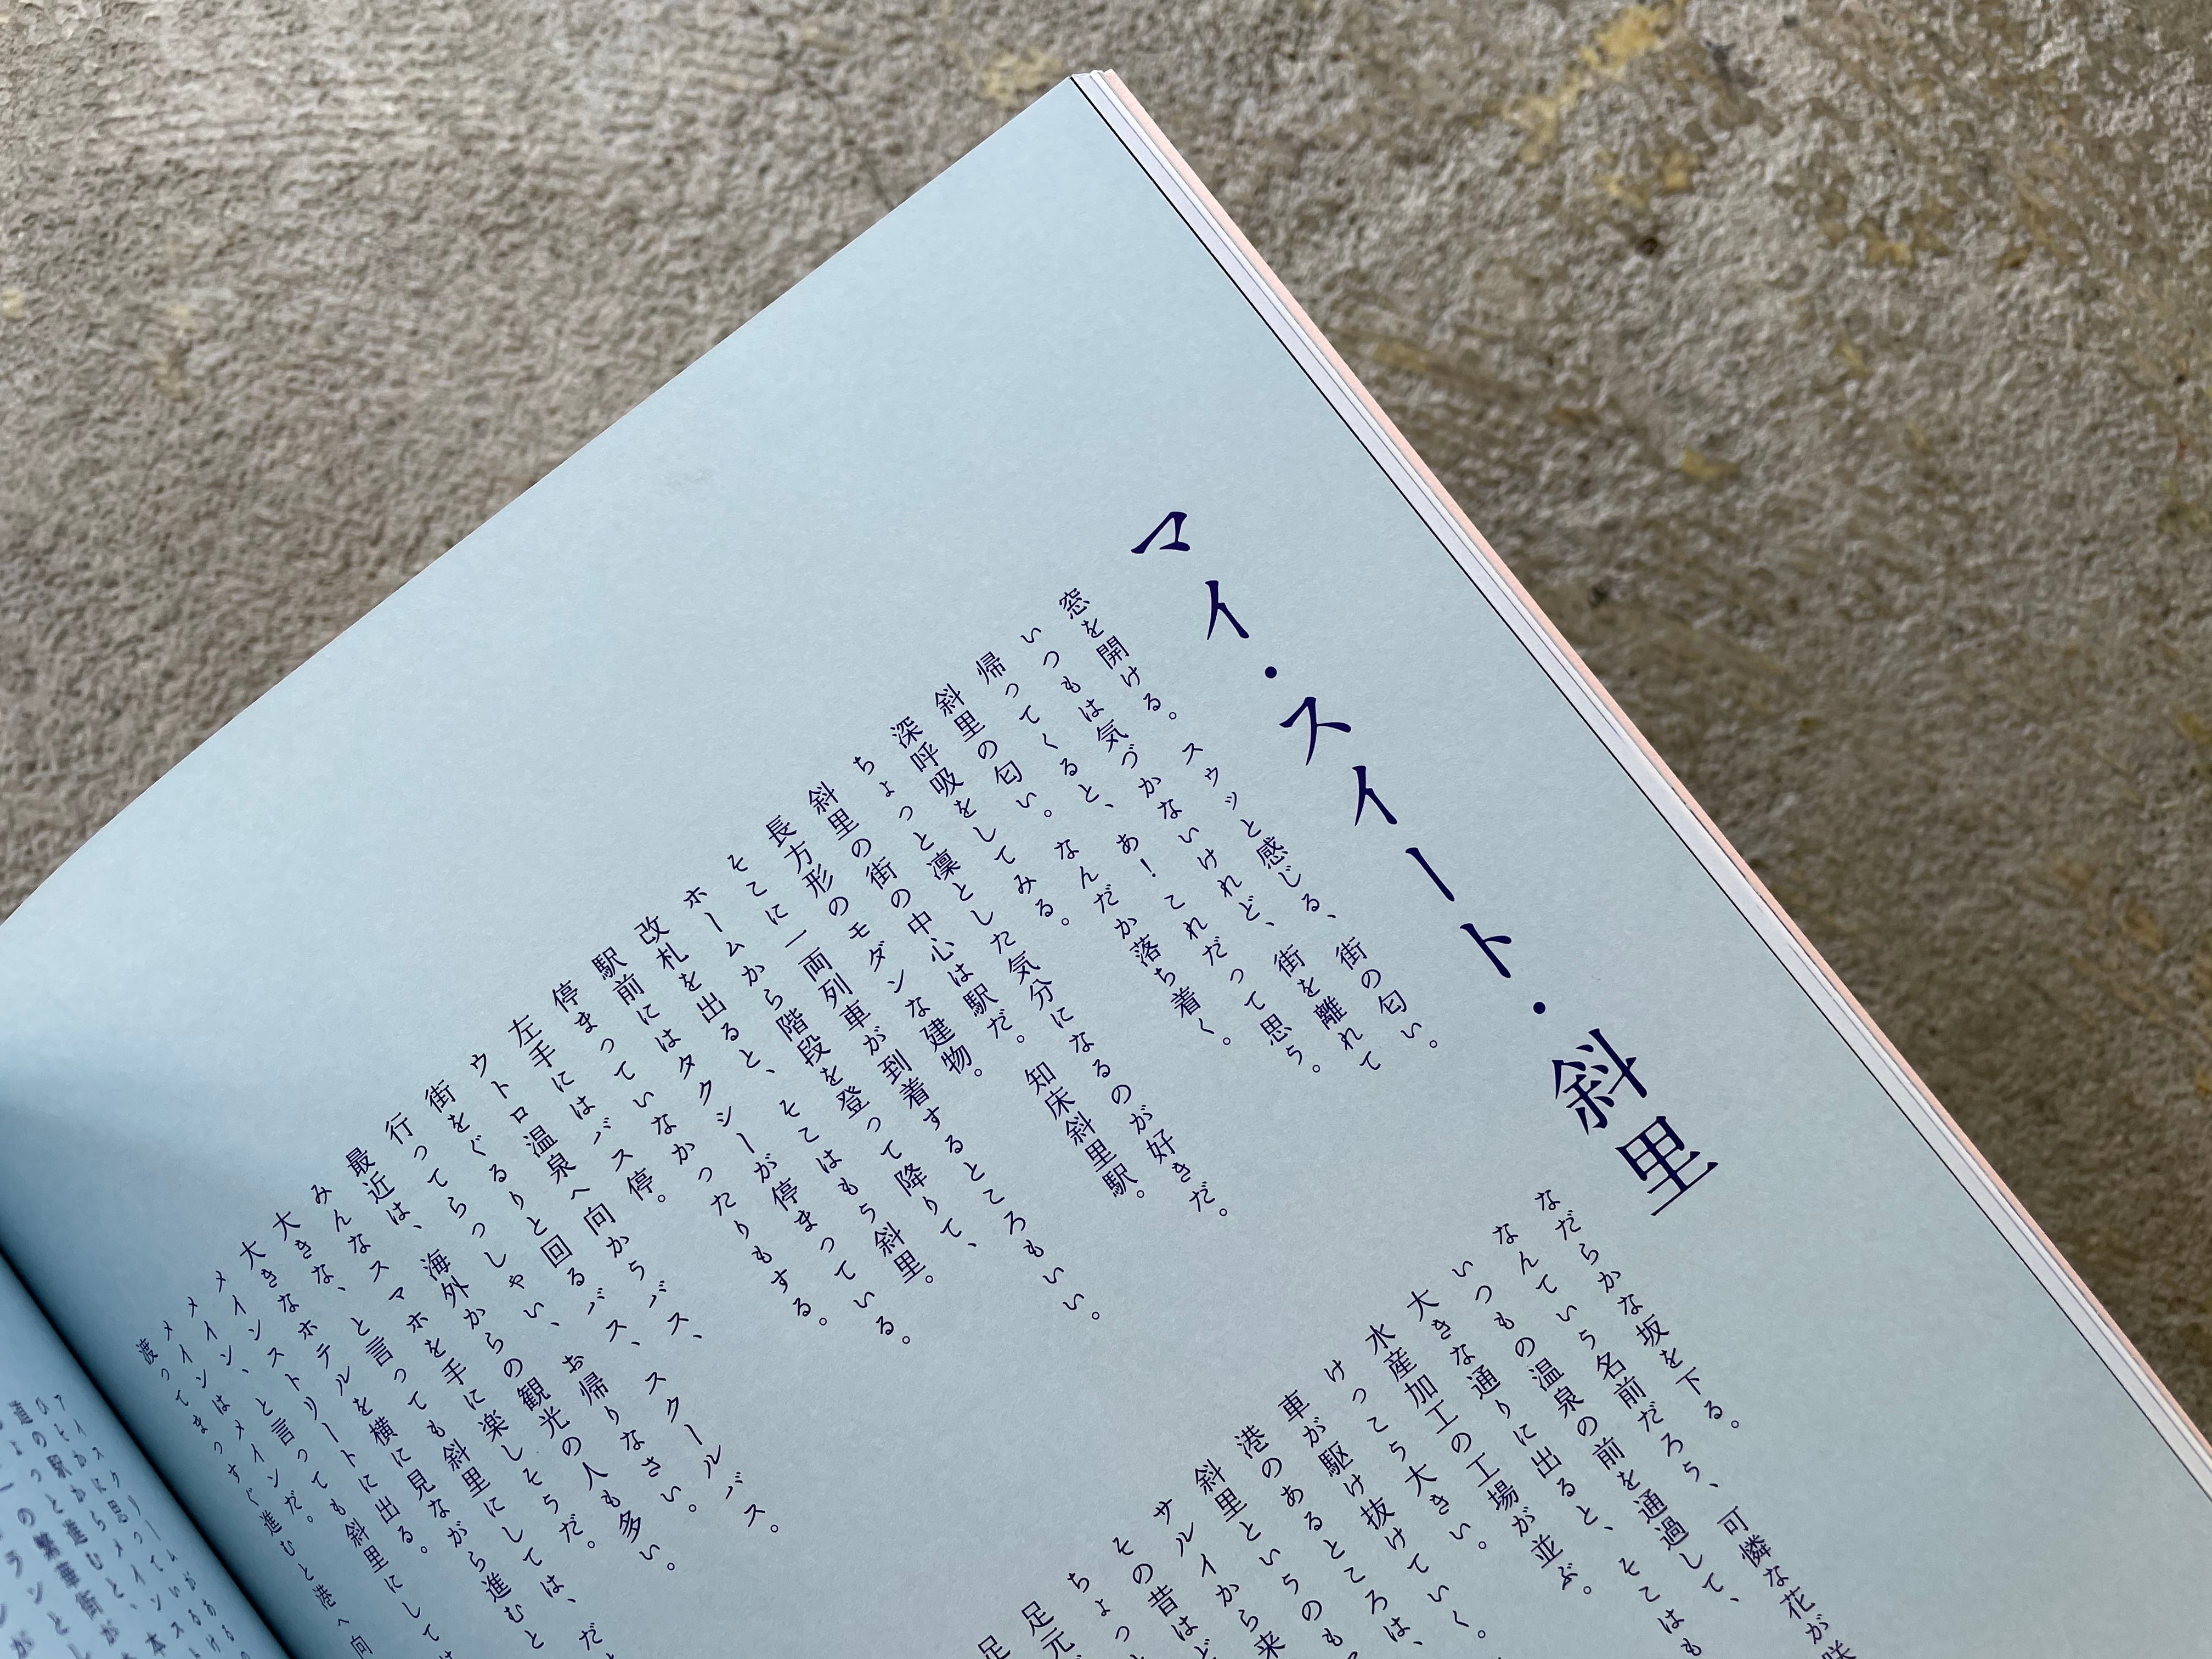 マイ・スイート・斜里
窓を開ける。スウッと感じる、街の匂い。
いつもは気づかないけれど、街を離れて
帰ってくると、あ！これだって思う。
斜里の匂い。なんだか落ち着く。
深呼吸をしてみる。
ちょっと凛とした気分になるのが好きだ。
斜里の街の中心は駅だ。知床斜里駅。
長方形のモダンな建物。
そこに一両列車が到着するところもいい。
ホームから階段を登って降りて、
改札を出ると、そこはもう斜里。
駅前にはタクシーが停まっている。
停まっていなかったりもする。
左手にはバス停。
ウトロ温泉へ向からバス、スクールバス。
街をぐるりと回るバス、お帰りなさい。
行ってらっしゃい、
最近は、海外からの観光の人も多い。
みんなスマホを手に楽しそうだ。
大きな、と言っても斜里にしては、だ
大きなホテルを横に見ながら進むと
メインストリートに出る。
メイン、と言っても斜里にしては
メインはメインだ。
渡ってまっすぐ進むと港へ向
なだらかな坂を下る。
なんていう名前だろう、可憐な花が咲
いつもの温泉の前を通過して、
大きな通りに出ると、そこはも
水産加工の工場が並ぶ。
けっこう大きい。
車が駆け抜けていく。
港のあるところは、
斜里というのも
サルイから来
その昔はど
ちょっ
足元
足